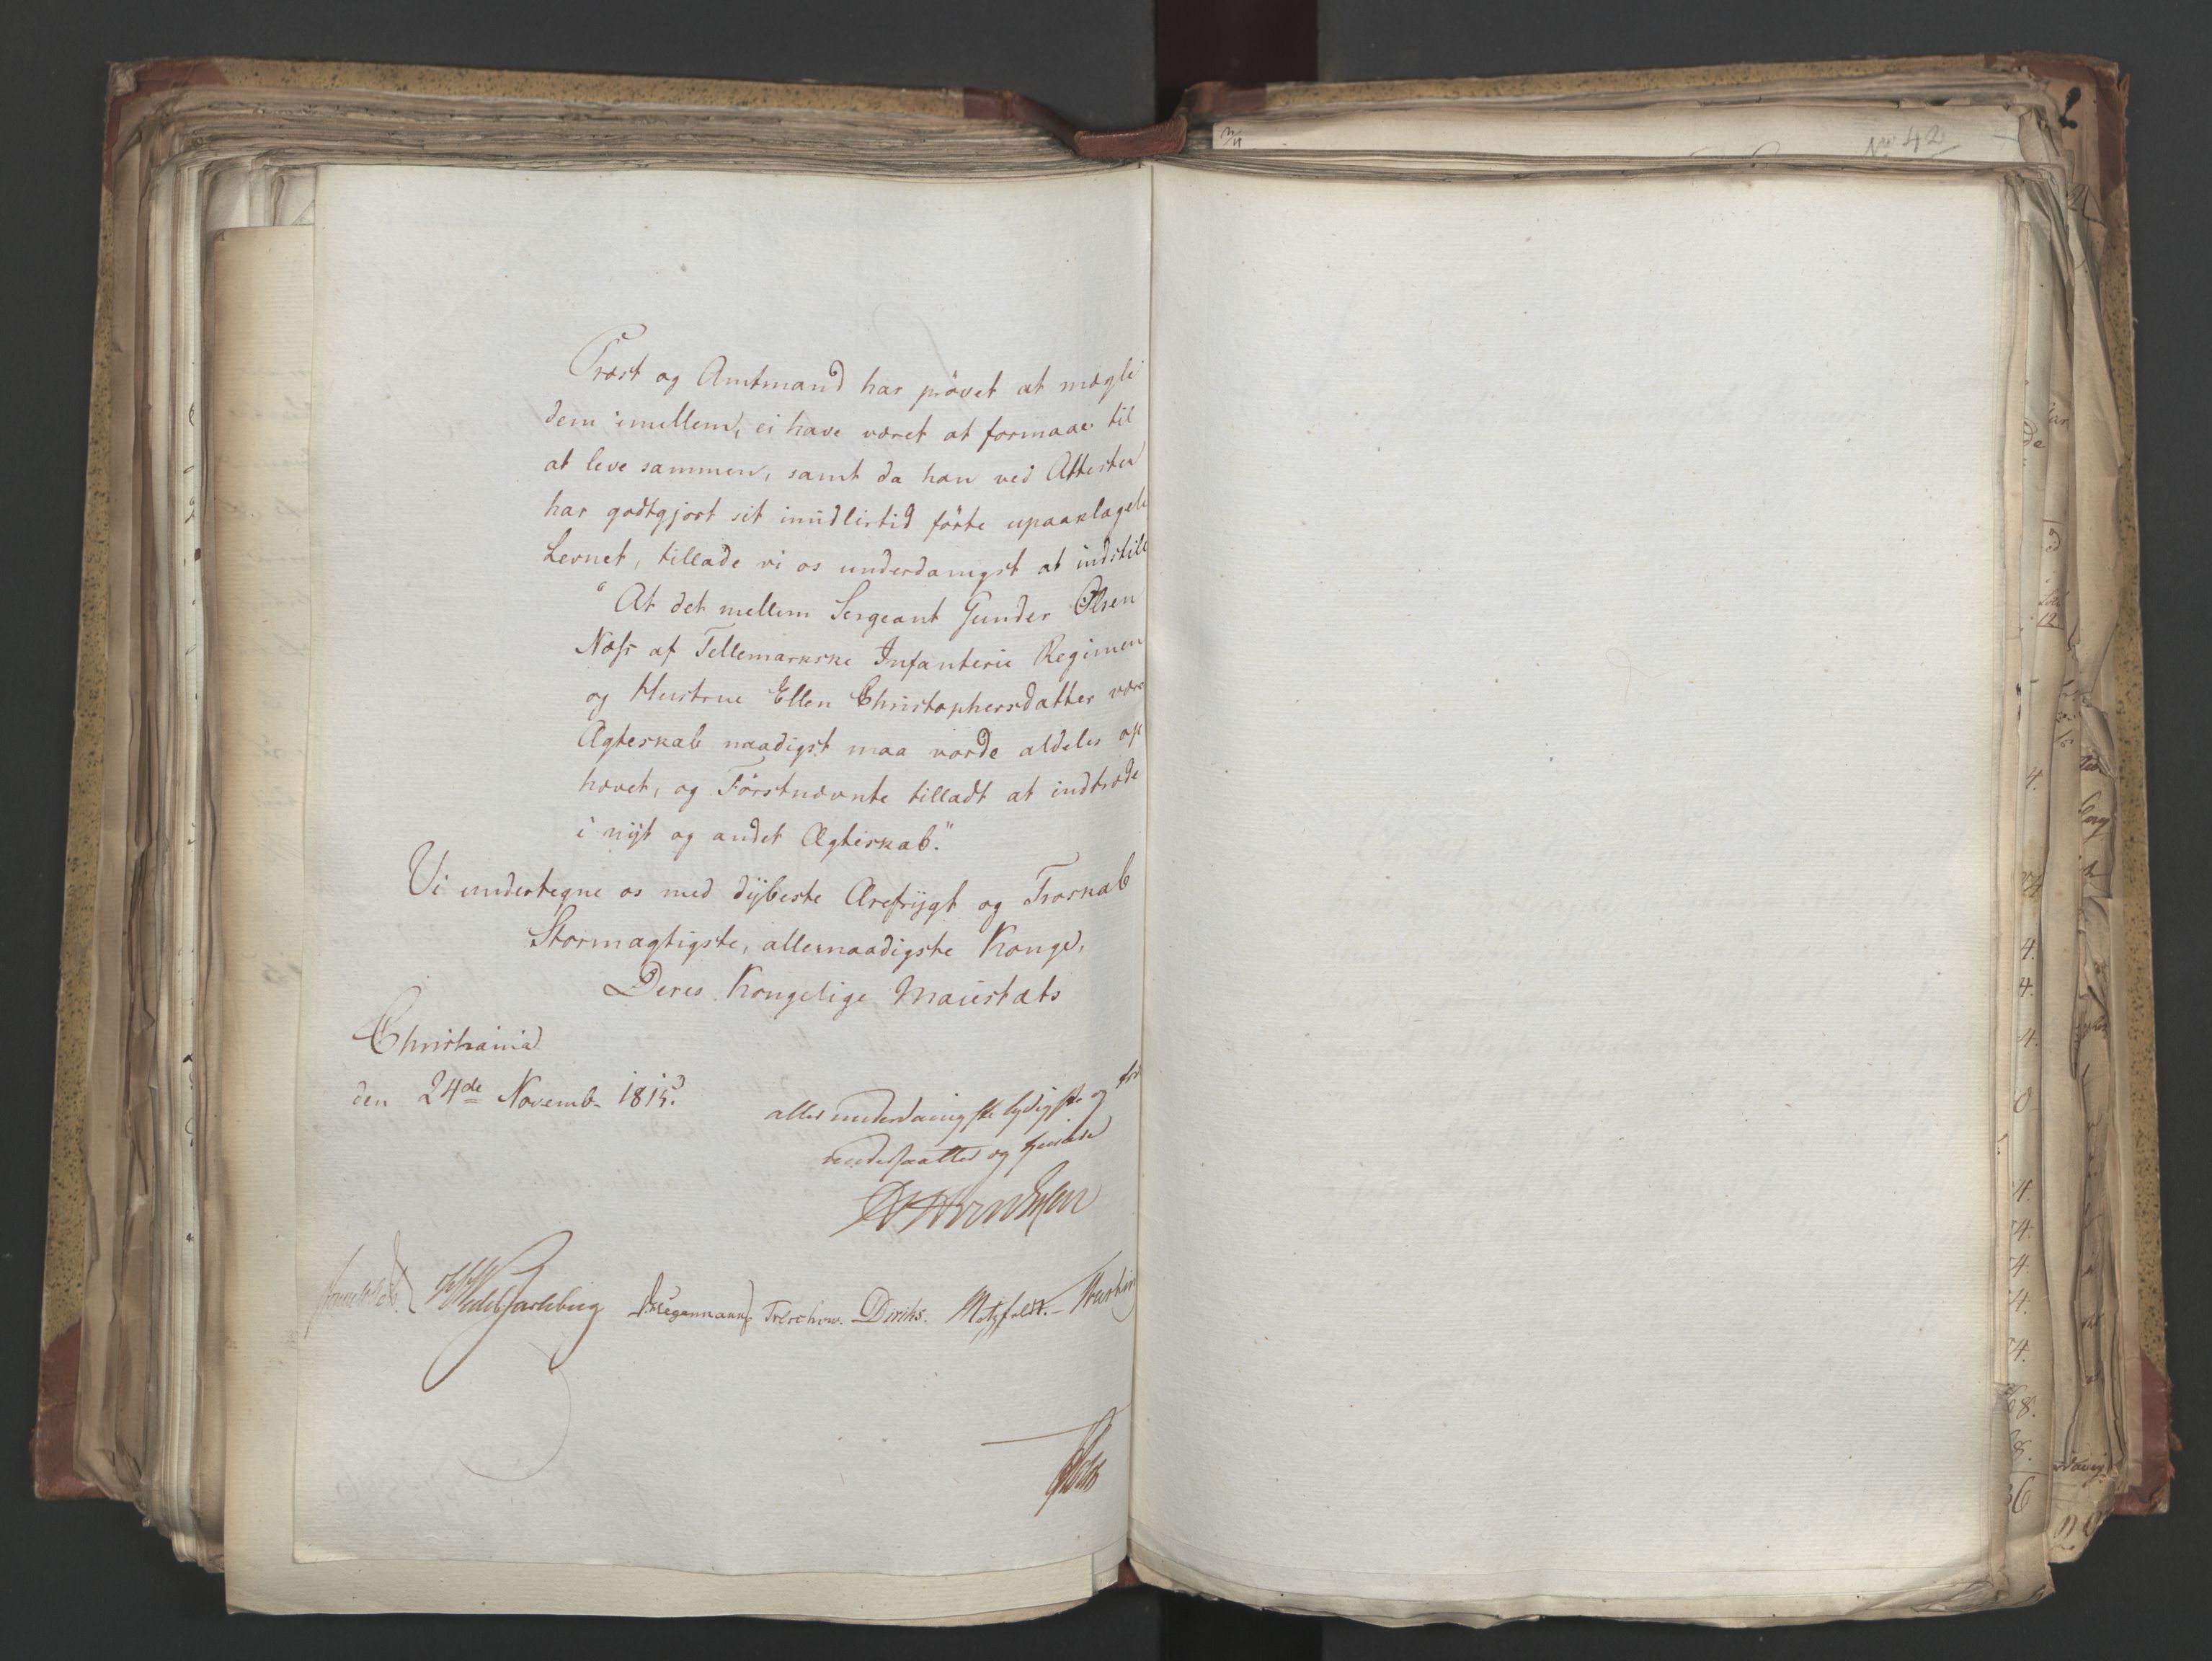 Præst og Amtmand har prövet at mægle
dem imellem, ei have været at formaae til
at leve sammen, samt da han ved Attester
har godtgjort sit imidlertid förte upaaklagele
Levnet, tillade vi os underdanigst at indstille
"At det mellem Sergeant Gunder Olsen
Næss af Tellemarkske Infanterie Regimen
og Hustrue Ellen Christophersdatter være
Ægteskab naadigst maa vorde aldeles op
hævet, og Förstnævnte tilladt at indtræde
i nyt og andet Ægteskab."
Vi undertegne os med dybeste Ærefrygt og Troskab
Stormægtigste, allernaadigste Konge,
Deres Kongelige Majestæts
Christiania
den 24de Novemb. 1815.
allerunderdanigste lydigste og
undersaatter og tjenere
Sommerfeldt. HWedel Jarlsberg D.Hegermann Treschow. Diriks. Motzfeldt.
No 42